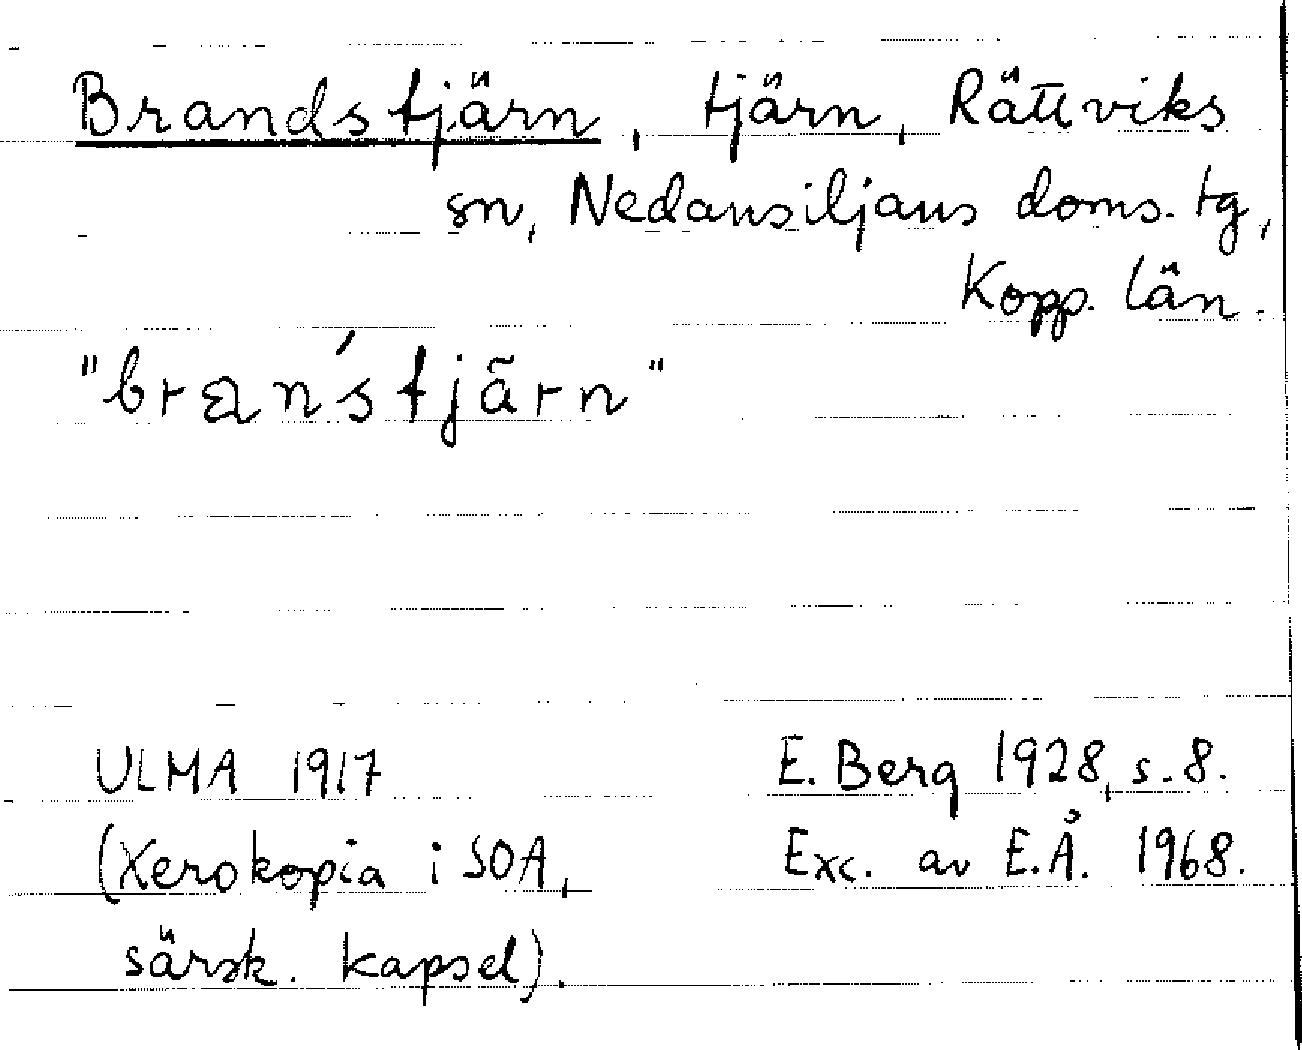 Brandstjärn, tjärn, Rättviks
sn, Nedansiljans doms. tg,
Kopp. län.
"bran´stjãrn"
ULMA 1917
E. Berg 1928, s. 8.
(Xerokopia i SOA,
Exc. av E.Å. 1968.
särsk. kapsel).